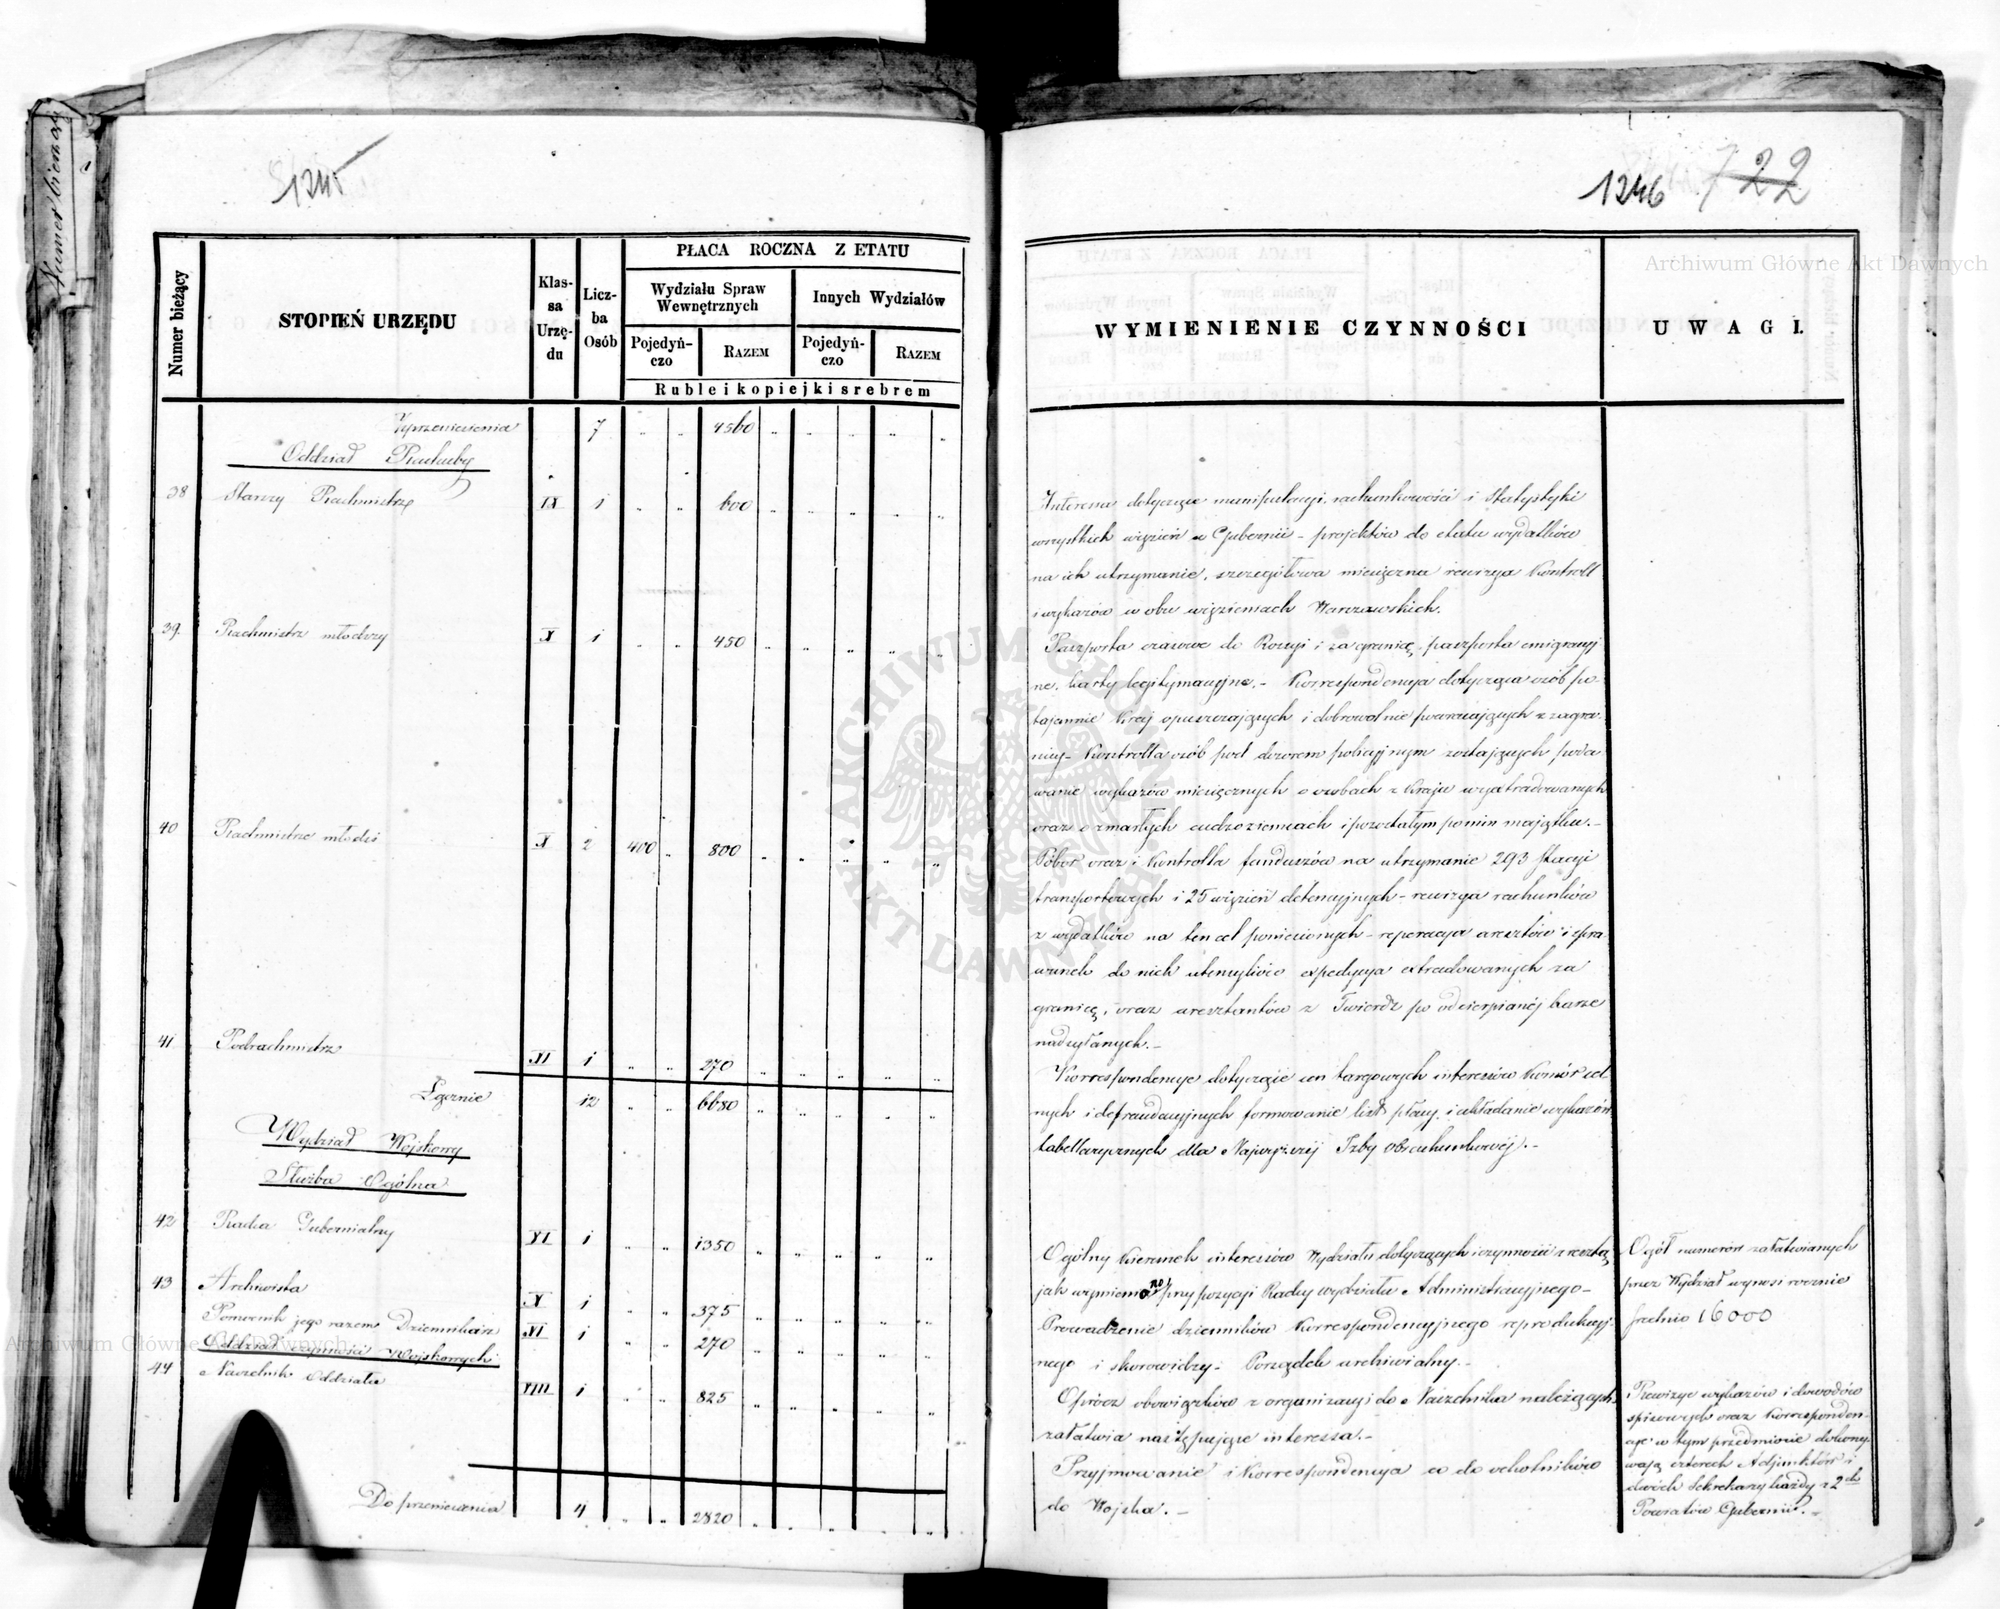 Numer bieżący
1245
1246
722
Numer bieżący
STOPIEŃ URZĘDU
Klas-
sa
Urzę-
du
Licz-
ba
Osób
PŁACA ROCZNA Z ETATU
Wydziału Spraw
Wewnętrznych
Innych Wydziałów
Pojedyń-
czo
RAZEM
Pojedyń-
czo
RAZEM
Ruble i kopiejki srebrem
Z przeniesienia 7 4560
Oddział Rachuby
38 Starszy Rachmistrz IX 1 600
39. Rachmistrz młodszy X 1 450
40 Rachmistrze młodsi X 2 400 800
41 Podrachmistrz XI 1 270
Ogółem 12 6680
Wydział Wojskowy
Służba Ogólna
42 Radca Gubernialny VI 1 1350
43 Archiwista X 1 375
Pomocnik jego razem Dziennikarz XI 1 270
Oddział czynności Wojskowych
44 Naczelnik Oddziału VIII 1 825
Do przeniesienia 4 2820
WYMIENIENIE CZYNNOŚCI
UWAGI.
Interessa dotyczące manipulacyi, rachunkowości i Statystyki
wszystkich więzień w Gubernii - projektów do etatu wydatków
na ich utrzymanie, szczegółowa miesięczna rewizya Kontroll
i wykazów w obu więzieniach Warszawskich.
Paszporta czasowe do Rossyi i za granicę, paszporta emigracyj
ne, karty legitymacyjne. - Korrespondencya dotycząca osób po-
tajemnie Kraj opuszczających i dobrowolnie powracających z zagra-
nicy - Kontrolla osób pod dozorem policyjnym zostających poda
wanie wykazów miesięcznych o osobach z Kraju wyextradowanych
oraz o zmarłych cudzoziemcach i pozostałym po nim majątku. -
Pobór oraz i Kontrolla funduszów na utrzymanie 293 Stacyi
transportowych i 25 więzień detencyjnych - rewizya rachunków
z wydatków na ten cel poniesionych - reperacya aresztów i spra
wunek do nich utensyliów expedycya extradowanych za
granicę, oraz aresztantów z Twierdz po odcierpianej karze
nadsyłanych. -
Korrespondencye dotyczące targowych interessów Komór cel
nych i defraudacyjnych formowanie list płacy, i układanie wykazów
tabellarycznych dla Najwyższej Izby Obrachunkowej. -
Ogólny Kierunek interessów Wydziału dotyczących i czynności z resztą
jak wymieniono przy pozycyi Radcy wydziału Administracyjnego -
Prowadzenie dzienników Korrespondencyjnego reprodukcyj-
nego i skorowidzy - Porządek archiwialny. -
Oprócz obowiązków z organizacyi do Naczelnika należących
załatwia następujące interessa. -
Przyjmowanie i Korrespondencya co do ochotników
do Wojska. -
Ogół numerów załatwianych
przez Wydział wynosi rocznie
średnio 16000
Rewizye wykazów i dowodów
spisowych oraz Korresponden-
cye w tym przedmiocie dokony-
wają czterech Adjunktów i
dwóch Sekretarzy każdy z 2ch
Powiatów Gubernii. -
Archiwum Główne Akt Dawnych
Archiwum Główne Akt Dawnych
ARCHIWUM GŁÓWNE AKT DAWNYCH